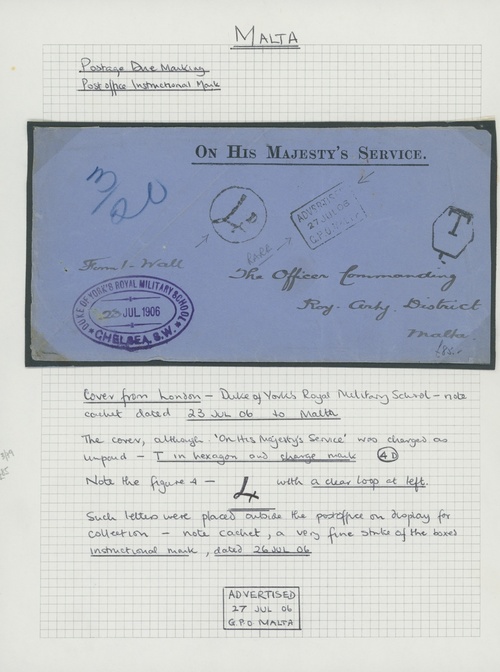 MALTA
Postage Due Marking
Post office Instructional Mark
ON HIS MAJESTY'S SERVICE.
3/20
4D
ADVERTISED
27 JUL 06
G.P.O. MALTA
T
RARE
From I. Wall
DUKE OF YORK'S ROYAL MILITARY SCHOOL
23 JUL 1906
CHELSEA, S.W.
The Officer Commanding
Roy. Arty. District
Malta
Cover from London - Duke of York's Royal Military School - note
cachet dated 23 JUL 06 to Malta
The cover, although 'On His Majesty's Service' was charged as
unpaid - T in hexagon and charge mark 4D
Note the figure 4 - 4 with a clear loop at left.
Such letters were placed outside the post office on display for
collection - note cachet, a very fine strike of the boxed
instructional mark, dated 26 JUL 06
ADVERTISED
27 JUL 06
G.P.O MALTA